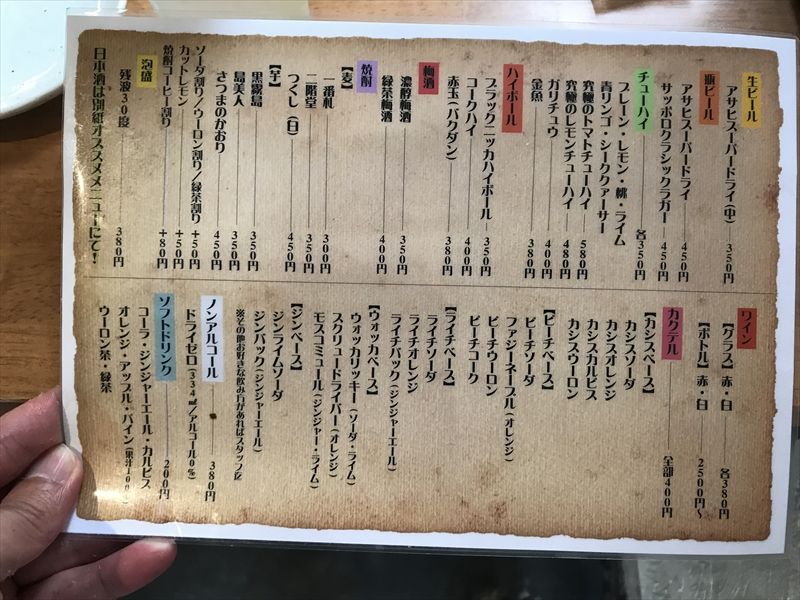 生ビール
アサヒスーパードライ(中) 350円
瓶ビール
アサヒスーパードライ 450円
サッポロクラシックラガー 450円
チューハイ 各350円
プレーン・レモン・桃・ライム
青リンゴ・シークァーサー
究極のトマトチューハイ 580円
究極のレモンチューハイ 480円
ガリチュウ 400円
金魚 380円
ハイボール
ブラックニッカハイボール 350円
コークハイ 400円
赤玉(バクダン) 380円
梅酒
濃醇梅酒 350円
緑茶梅酒 400円
焼酎
【麦】
一番札 300円
二階堂 350円
つくし(白) 450円
【芋】
黒霧島 350円
島美人 350円
さつまのかおり 450円
ソーダ割り/ウーロン割り/緑茶割り +50円
カットレモン +50円
焼酎コーヒー割り +80円
泡盛
残波30度 380円
日本酒は別紙オススメメニューにて!
ワイン
【グラス】赤・白 各380円
【ボトル】赤・白 2500円〜
カクテル 全部400円
【カシスベース】
カシスソーダ
カシスオレンジ
カシスカルピス
カシスウーロン
【ピーチベース】
ピーチソーダ
ファジーネーブル(オレンジ)
ピーチウーロン
ピーチコーク
【ライチベース】
ライチソーダ
ライチオレンジ
ライチバック(ジンジャーエール)
【ウォッカベース】
ウォッカリッキー(ソーダ・ライム)
スクリュードライバー(オレンジ)
モスコミュール(ジンジャー・ライム)
【ジンベース】
ジンライムソーダ
ジンバック(ジンジャーエール)
※その他お好きな飲み方があればスタッフ迄
ノンアルコール
ドライゼロ(334㎖/アルコール0%) 380円
ソフトドリンク 200円
コーラ・ジンジャーエール・カルピス
オレンジ・アップル・パイン(果汁100%)
ウーロン茶・緑茶